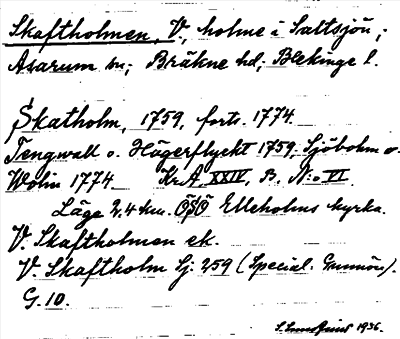 Skaftholmen, V., holme i Saltsjön;
Asarum sn; Bräkne hd; Blekinge l.
Skatholm, 1759, forts. 1774
Tengwall o. Högerflycht 1759; Sjöbohm o.
Wolin 1774 Kr. A. XXIV, B. N:o VI
Läge 2,4 km. OSO Elleholms kyrka.
V. Skaftholmen ek.
V. Skaftholm Sj. 259 (Special. Gunnön).
G. 10.
1936.